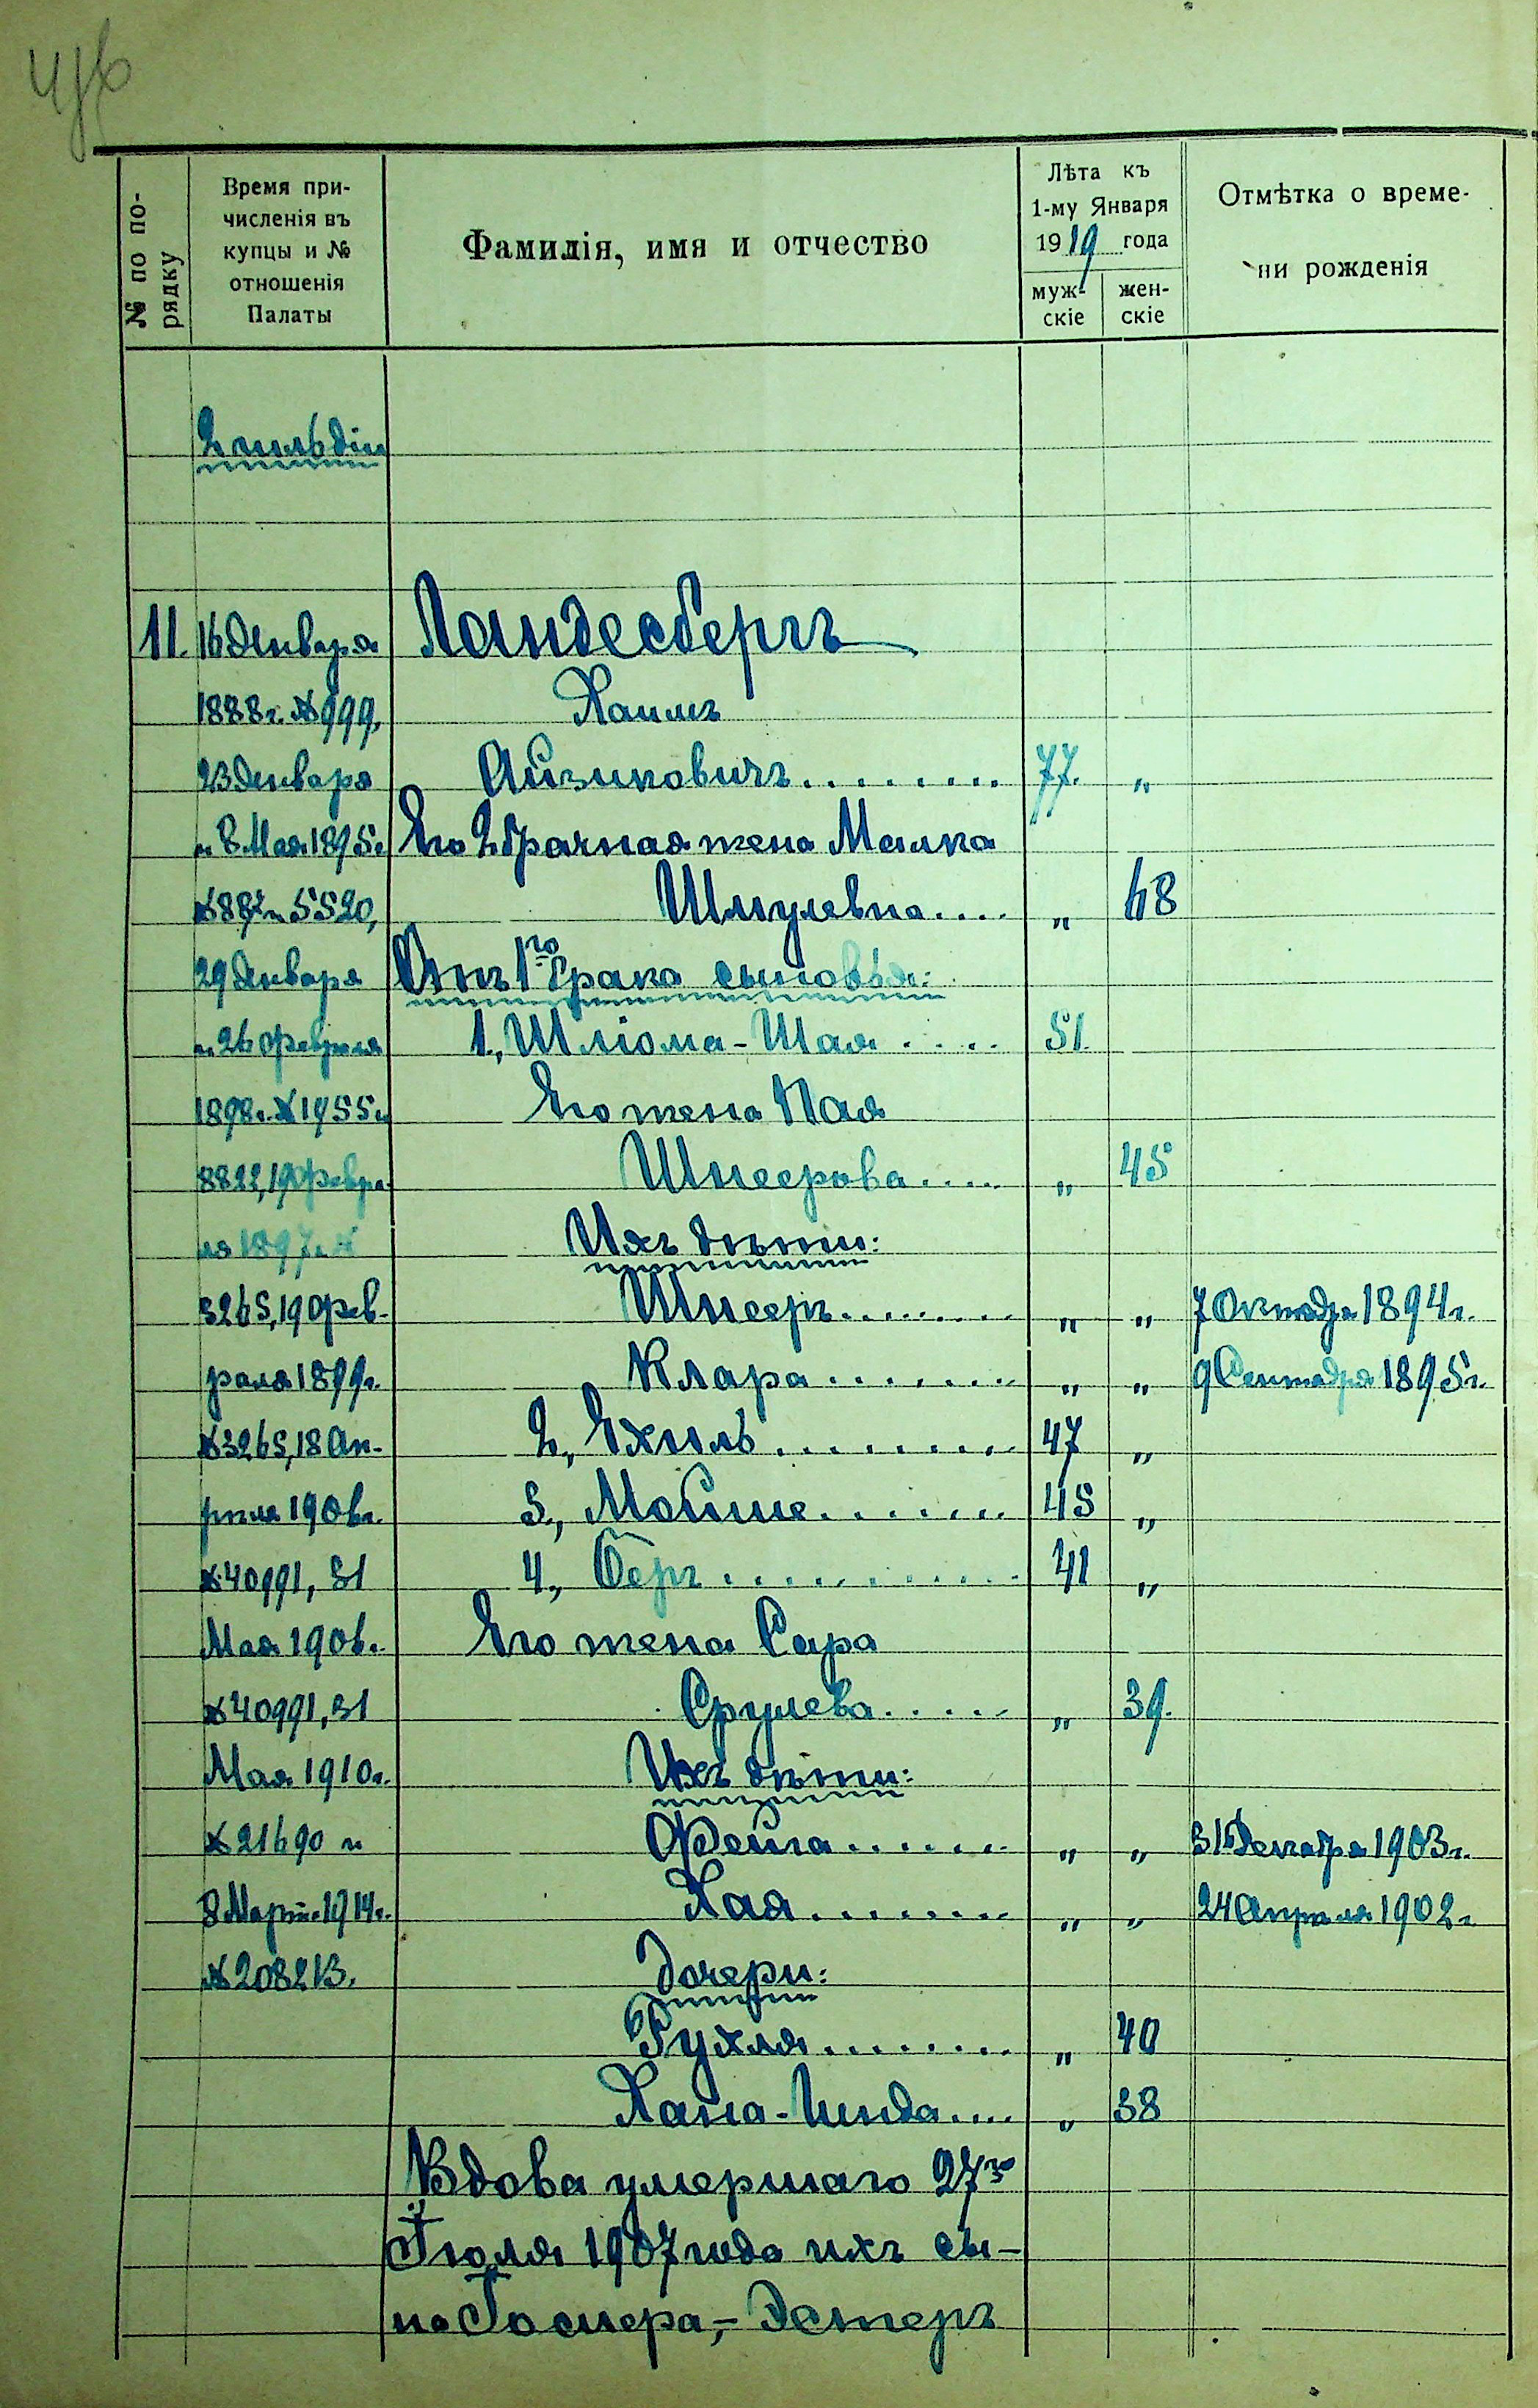 № по по-
рядку
Время при-
численія въ
купцы и №
отношенія
Палаты
Фамилія, имя и отчество
Лѣта къ
1-му Января
1919 года
муж-
скіе
жен-
скіе
Отмѣтка о време-
ни рожденія
2 гильдіи
11. 16 Января Ландесбергъ
1888 г. № 999, Хаимъ
23 Января Айзиковичъ........ 77. „
и 8 Мая 1895 г. Его 2 брачная жена Малка
№ 887 и 5520, Шмулевна.... „ 68
29 Января Отъ 1го брака сыновья:
и 26 Февраля 1., Шліома-Шая..... 51.
1898 г. № 1955 и Его жена Пая
8822, 19 Февра- Шнеерова..... „ 45
ля 1897 г. № Ихъ дѣти:
3265, 19 Фев- Шнееръ......... „ „ 7 Октября 1894 г.
раля 1899 г. Клара........ „ „ 9 Сентября 1895 г.
№ 3265, 18 Ап- 2., Ехиль......... 47 „
рѣля 1906 г. 3., Мойше....... 45 „
№ 40991, 31 4., Беръ........... 41 „
Мая 1906 г. Его жена Сара
№ 40991, 31 Срулева..... „ 39.
Мая 1910 г. Ихъ дѣти:
№ 21690 и Фейга....... „ „ 31 Декабря 1903 г.
8 Марта 1914 г. Хая........ „ „ 24 Апрѣля 1902 г.
№ 20821В. Дочери:
Рухля........ „ 40
Хана-Гинда.... „ 38
Вдова умершаго 27го
Іюля 1907 года ихъ сы-
на Іосифа,- Эстеръ